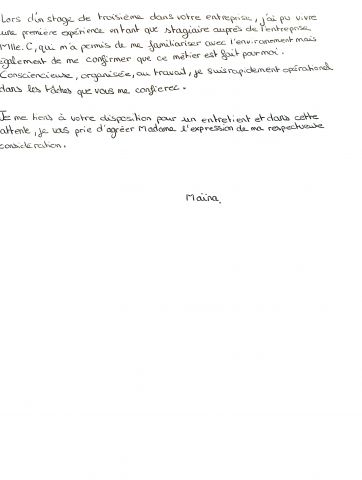 Lors d'un stage de troisième dans votre entreprise, j'ai pu vivre
une première expérience en tant que stagiaire auprès de l'entreprise
Mlle. C, qui m'a permis de me familiariser avec l'environement mais
également de me confirmer que ce métier est fait pour moi.
Consciencieuse, organisée, au travail, je suis rapidement opérationnel
dans les tâches que vous me confierez.
Je me tiens à votre disposition pour un entretient et dans cette
attente, je vous prie d'agréer Madame l'expression de ma respectueuse
considération.
Maïna